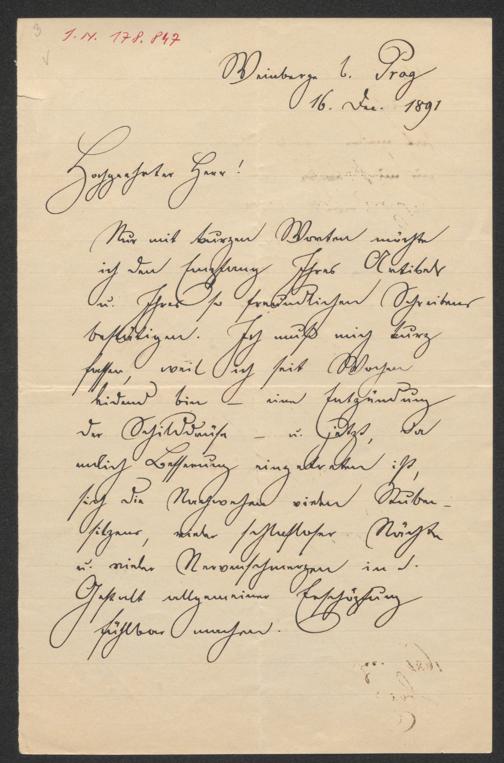 3
J.N. 178.847
Weinberge b. Prag
16. Dec. 1891
Hochgeehrter Herr!
Nur mit kurzen Worten möchte
ich den Empfang Ihres Artikels
u. Ihres so freundlichen Schreibens
bestätigen. Ich muß mich kurz
fassen, weil ich seit Wochen
leidend bin – eine Entzündung
der Schilddrüse – u. jetzt, da
endlich Besserung eingetreten ist,
sich die Nachwehen vielen Stuben-
sitzens, vieler schlafloser Nächte
u. vieler Nervenschmerzen in d.
Gestalt allgemeiner Erschöpfung
fühlbar machen.